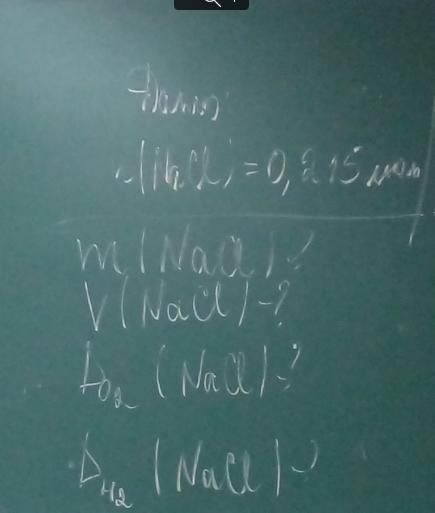 Дано:
n(NaCl) = 0,215 моль
m(NaCl)-?
V(NaCl)-?
D_O2 (NaCl)-?
D_H2 (NaCl)-?